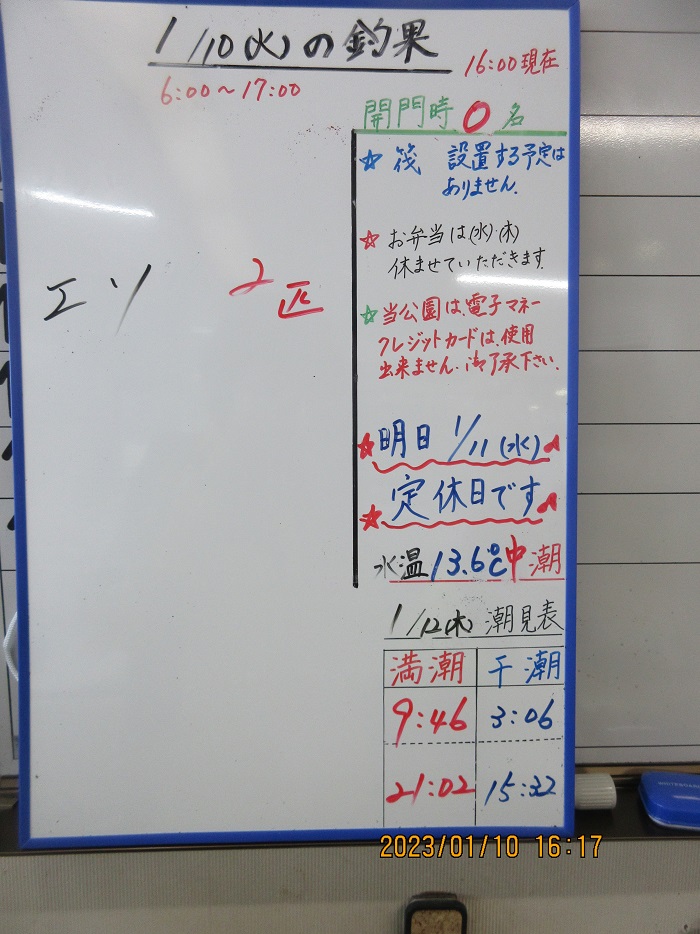 1/10(火)の釣果
16:00現在
6:00～17:00
開門時 0名
エソ 2匹
☆筏 設置する予定は
ありません.
☆お弁当は(水)・(木)
休ませていただきます.
☆当公園は、電子マネー
クレジットカードは、使用
出来ません. 御了承下さい.
☆明日 1/11(水)
☆定休日です
水温13.6℃ 中潮
1/12(木) 潮見表
満潮 干潮
9:46 3:06
21:02 15:32
WHITEBOARD
2023/01/10 16:17